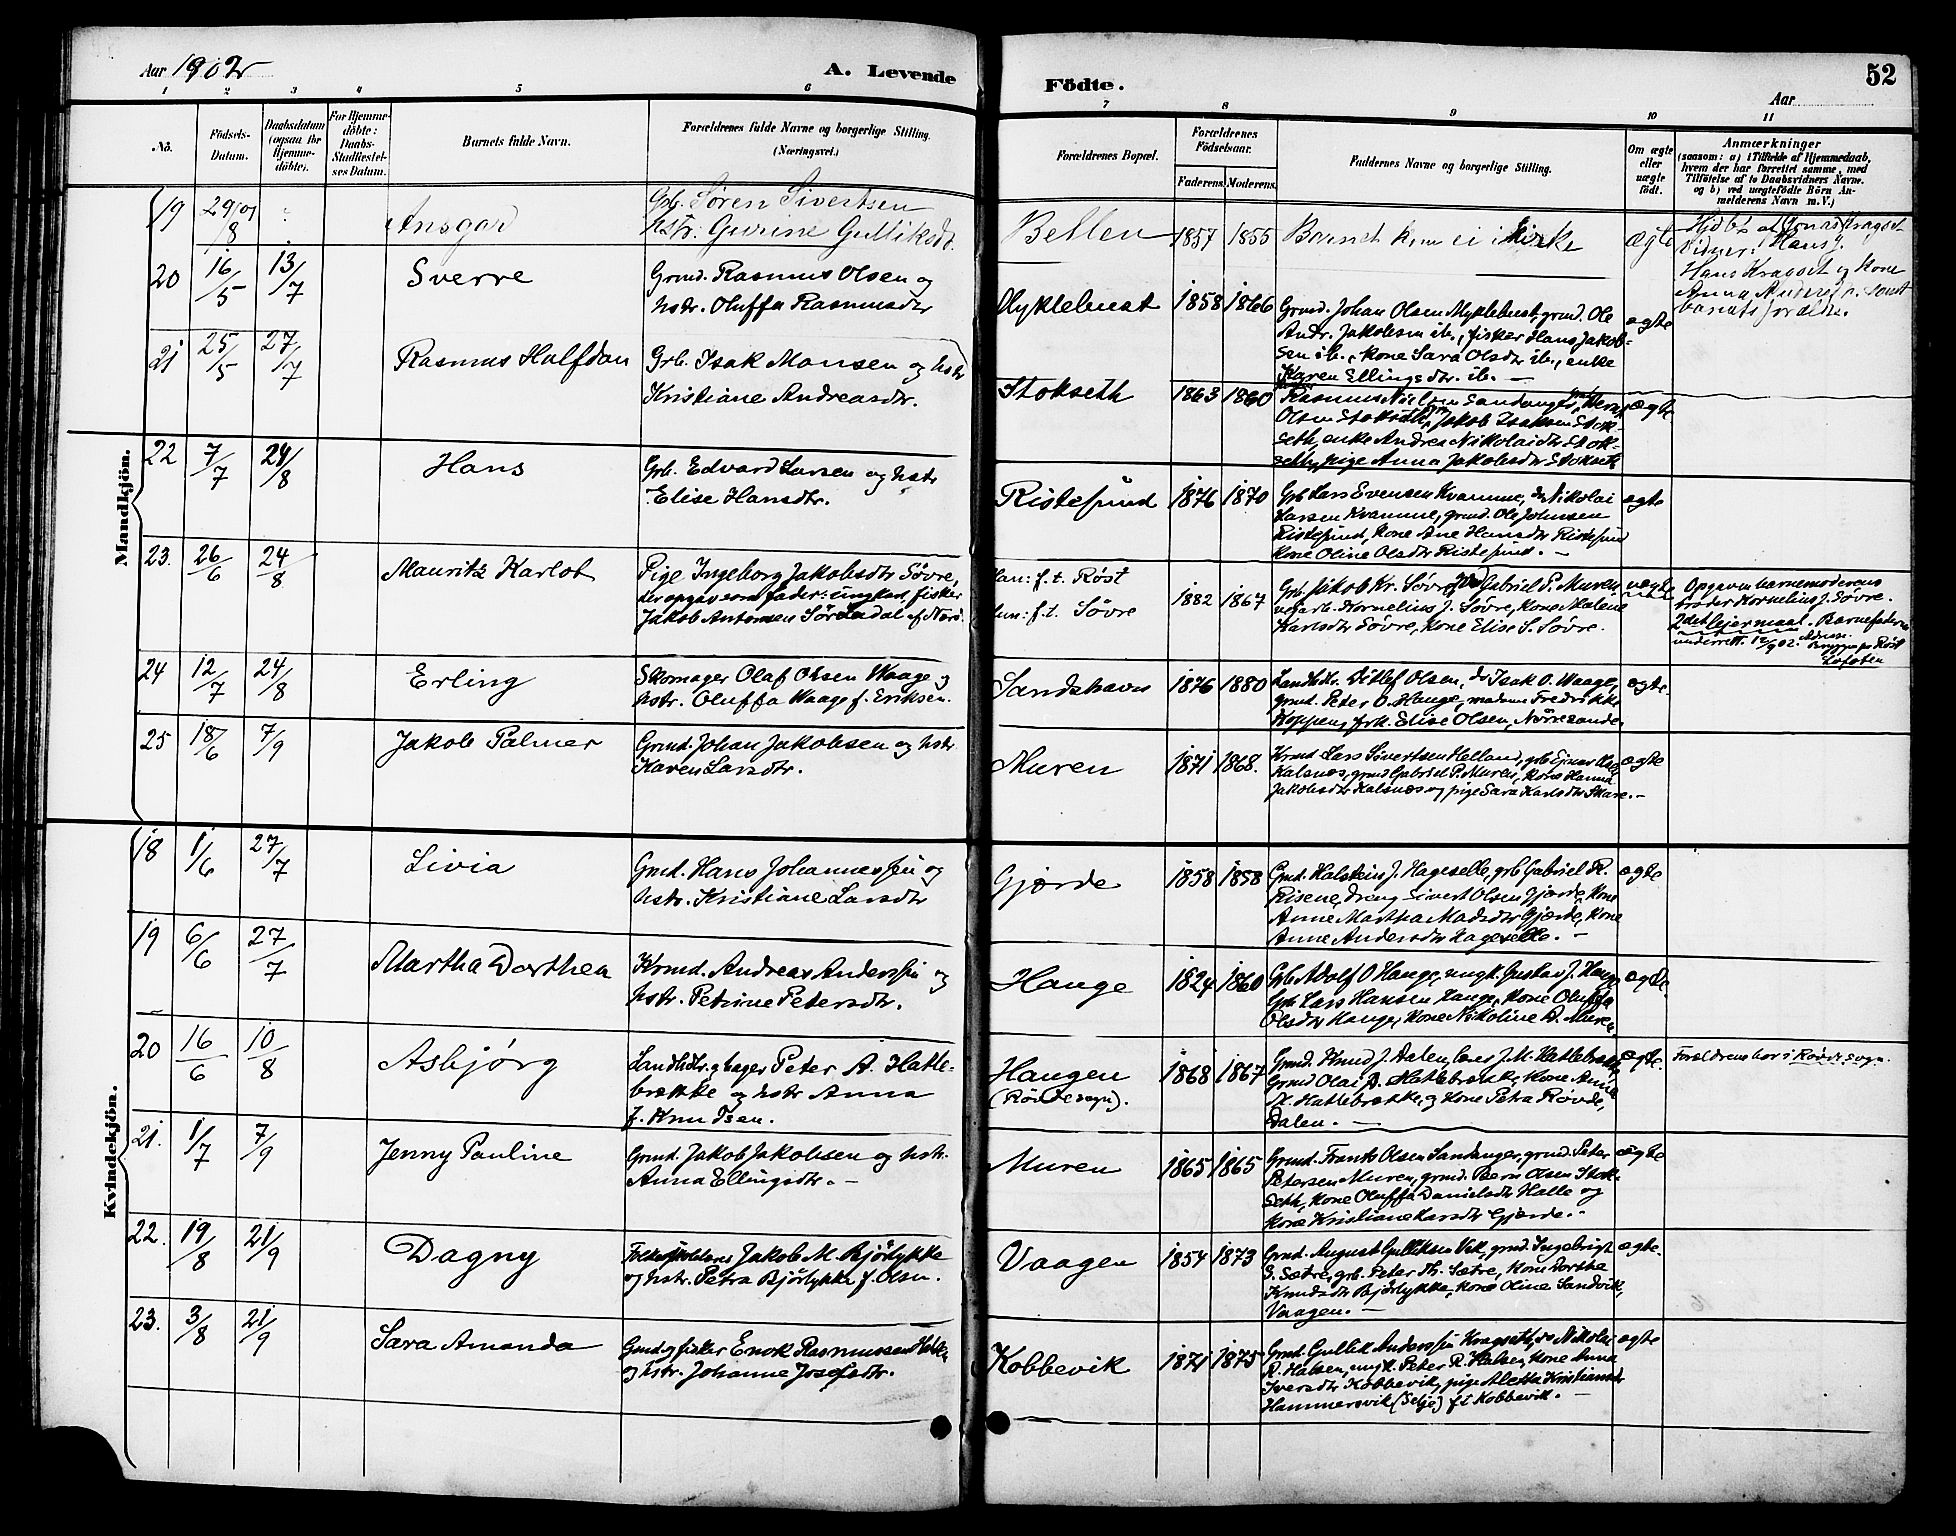 Aar 1902
A. Levende
Födte.
52
Aar
1 2 3 4 5 6 7 8 9 10 11
No.
Födsels-
Datum.
Daabsdatum
(ogsaa for
Hjemme-
döbte).
For Hjemme-
döbte:
Daabs-
Stadfæstel-
ses Datum.
Barnets fulde Navn.
Forældrenes fulde Navne og borgerlige Stilling.
(Næringsvei.)
Forældrenes Bopæl.
Forældrenes
Födselsaar.
Faderens. Moderens.
Faddernes Navne og borgerlige Stilling.
Om ægte
eller
uægte
født.
Anmærkninger
(saasom: a) i Tilfælde af Hjemmedaab,
hvem der har forrettet samme, med
Tilføielse af to Daabsvidners Navne,
og b) ved uægtefødte Börn An-
melderens Navn m. V.)
Mandkjön.
19 29/8 01 Ansgar
Grb. Søren Sivertsen
hstr. Gurine Gulliksdtr.
Betten 1857 1855 Barnet kom ei i kirke ægte
Hjdbt af Jonas Kragset
Vidner: Hans J.
Hans Kragset og kone
Anna samt
barnets forældre.
20 16/5 13/7 Sverre
Grmd. Rasmus Olsen og
hstr. Oluffa Rasmusdtr
Myklebust 1858 1866
Grmd. Johan Olsen Myklebust, grmd. Ole
Andr. Jakobsen ib., fisker Hans Jakob-
sen ib., kone Sara Olsdtr ib., enke
Karen Ellingsdtr. ib. —
ægte
21 25/5 27/7 Rasmus Halfdan
Grb. Isak Monsen og hstr
Kristiane Andreasdtr.
Stokseth 1863 1860
Rasmus Nielsen Sandanger, Bern
Olsen Stokseth, Jakob Isaksen Stok-
seth, enke Andrea Nikolaidtr Stok-
seth, pige Anna Jakobsdtr Stokseth
ægte
22 7/7 24/8 Hans
Grb. Edvard Larsen og hstr
Elise Hansdtr.
Ristesund 1876 1870
Grb Lars Evensen Kvamme, do Nikolai
Larsen Kvamme, grmd. Ole Johnsen
Ristesund, kone Ane Hansdtr Ristesund
kone Oline Olsdtr Ristesund. —
ægte
23. 26/6 24/8 Mauritz Karlot
Pige Ingeborg Jakobsdtr Søvre,
der opgav som fader: ungkarl, fisker
Jakob Antonsen Sørdal af
Han: f. t. Røst
Hun: f. t. Søvre
1882 1867
Grb. Jakob Kr. Søvre, Gabriel P. Muren
Kornelius J. Søvre, kone Malene
Karlsdtr Søvre, kone Elise S. Søvre.
uægte
Opgaven barnemoderens
broder Kornelius J. Søvre.
2det leiermaal. Barnefaderen
underrett. 12/9 02. Adresse
Røst
Lofoten
24 12/7 24/8 Erling
Skomager Olaf Olsen Waage og
hstr. Oluffa Waage f. Eriksen.
Sandshavn 1876 1880
Landhdr. Ditlef Olsen, do Isak O. Waage,
grmd. Peter O. Hauge, madam Fredrikke
Koppen, frk. Elise Olsen, Nörresande
ægte.
25 18/6 7/9 Jakob Palmer
Grmd. Johan Jakobsen og hstr
Karen Larsdtr.
Muren 1871 1868.
Krmd Lars Sivertsen Helland, grb Ejnar
Kalsnes, grmd Gabriel P. Muren, kone Hanna
Jakobsdtr Kalsnes og pige Sara Karlsdtr Skare. —
ægte
Kvindekjön.
18 1/6 27/7 Livia
Grmd. Hans Johannessen og
hstr. Kristiane Larsdtr
Gjærde 1858 1858
Grmd. Halstein J. Hageselle, grb Gabriel R.
Risene, dreng Sivert Olsen Gjærde, kone
Anne Martha Madsdtr Gjærde, kone
Anne Andersdtr Hageselle. —
ægte
19 6/6 27/7 Martha Dorthea
Krmd. Andreas Anderssen og
hstr. Petrine Petersdtr.
Hauge 1824 1860
Grb Adolf O. Hauge, ungk. Gustav J. Hauge
Grb Lars Hansen Hauge, kone Oluffa
Olsdtr Hauge, kone Nikoline D. Muren
ægte.
20 16/6 10/8 Asbjørg
Landhdlr. og bager Peter A. Hatle-
brække og hstr Anna
f. Knudsen.
Haugen
(Røvde sogn).
1868 1867
Grmd. Knud J. Dalen, lærer J. M. Hatlebrække
Grmd Olai A. Hatlebrække, kone Anne
M. Hatlebrække, og kone Petra Røvde,
Dalen. —
ægte.
Forældrene bor i Røvde sogn.
21. 1/7 7/9 Jenny Pauline
Grmd. Jakob Jakobsen og hstr.
Anna Ellingsdtr. —
Muren 1865 1865
Grmd. Frants Olsen Sandanger, grmd. Peter
Petersen Muren, grmd. Bern Olsen Stok-
seth, kone Oluffa Danielsdtr Halle og
kone Kristiane Larsdtr Gjærde. —
ægte
22. 19/8 21/9 Dagny
Jakob M. Bjørlykke
og hstr. Petra Bjørlykke f. Olsen.
Vaagen 1854 1873
Grmd. August Gulliksen Vik, grmd. Ingebrigt
S. Sætre, grb. Peter Th. Sætre, kone Dorthe
Knudsdtr Bjørlykke, kone Oline Sandvik,
Vaagen. —
ægte.
23. 3/8 21/9 Sara Amanda
Grmd. og fisker Enok Rasmussen
og hstr. Johanne Josefsdtr.
Kobbevik 1871 1875
Grmd. Gullik Anderssen Kragset, do Nikolai
R. Halsen, ungk. Peter R. Halsen, kone Anna
Iversdtr Kobbevik, pige Aletta Kristiansdtr
Hammersvik (Selje) f. t. Kobbevik. —
ægte